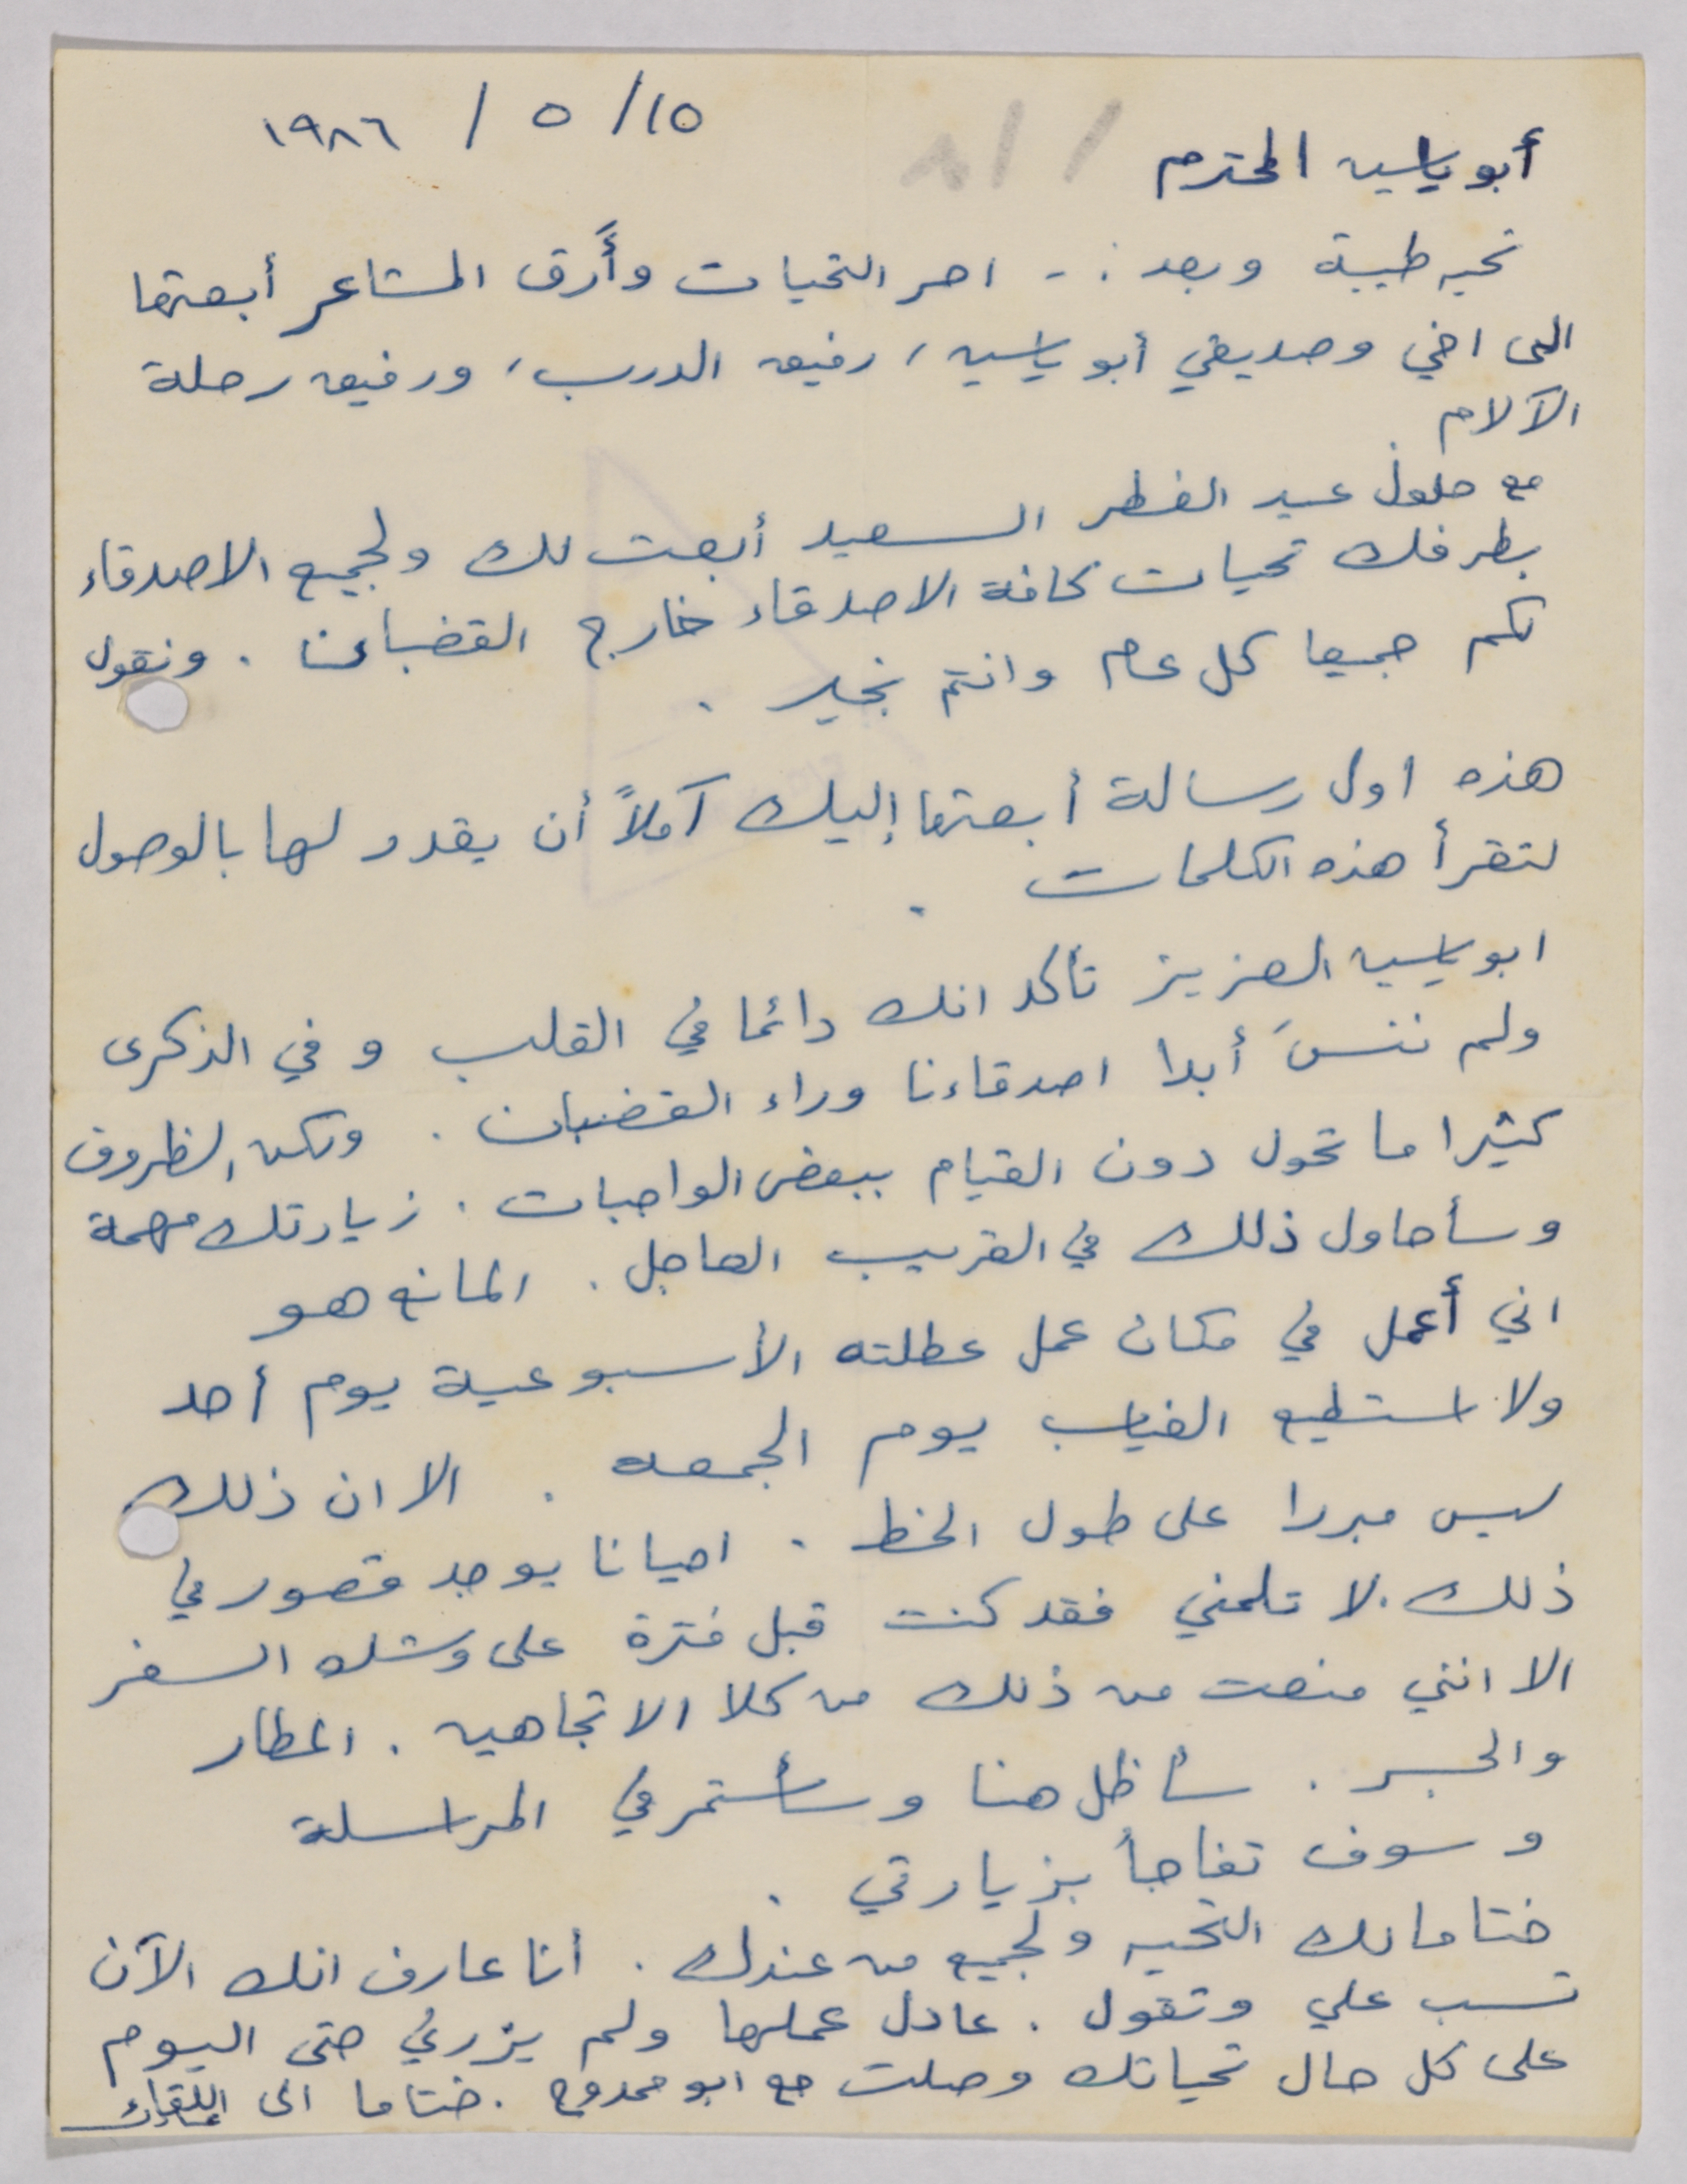 ١٥/ ٥ / ١٩٨٦
أبو ياسين المحترم
تحيه طيبة وبعد :- احر التحيات وأرق المشاعر أبعثها
الى اخي وصديقي أبو ياسين، رفيق الدرب، ورفيق رحلة
الآلام
مع حلول عيد الفطر السعيد أبعث لك ولجميع الاصدقاء
بطرفك تحيات كافة الاصدقاء خارج القضبان . ونقول
لكم جميعا كل عام وانتم بخير .
هذه اول رسالة أبعثها إليك آملاً أن يقدر لها بالوصول
لتقرأ هذه الكلمات .
ابو ياسين العزيز تأكد انك دائما في القلب وفي الذكرى
ولم ننسَ أبدا اصدقاءنا وراء القضبان . ولكن الظروف
كثيرا ما تحول دون القيام ببعض الواجبات . زيارتك مهمة
وسأحاول ذلك في القريب العاجل . المانع هو
اني أعمل في مكان عمل عطلته الأسبوعية يوم أحد
ولا استطيع الغياب يوم الجمعه . الا ان ذلك
ليس مبررا على طول الخط . احيانا يوجد قصور في
ذلك . لا تلمني فقد كنت قبل فترة على وشك السفر
الا انني منعت من ذلك من كلا الاتجاهين . المطار
والجسر . سأظل هنا وسأستمر في المراسلة
وسوف تفاجأ بزيارتي .
ختاما لك التحيه ولجميع من عندك . أنا عارف انك الآن
تسب علي وتقول . عادل عملها ولم يزرني حتى اليوم
على كل حال تحياتك وصلت مع ابو ممدوح . ختاما الى اللقاء